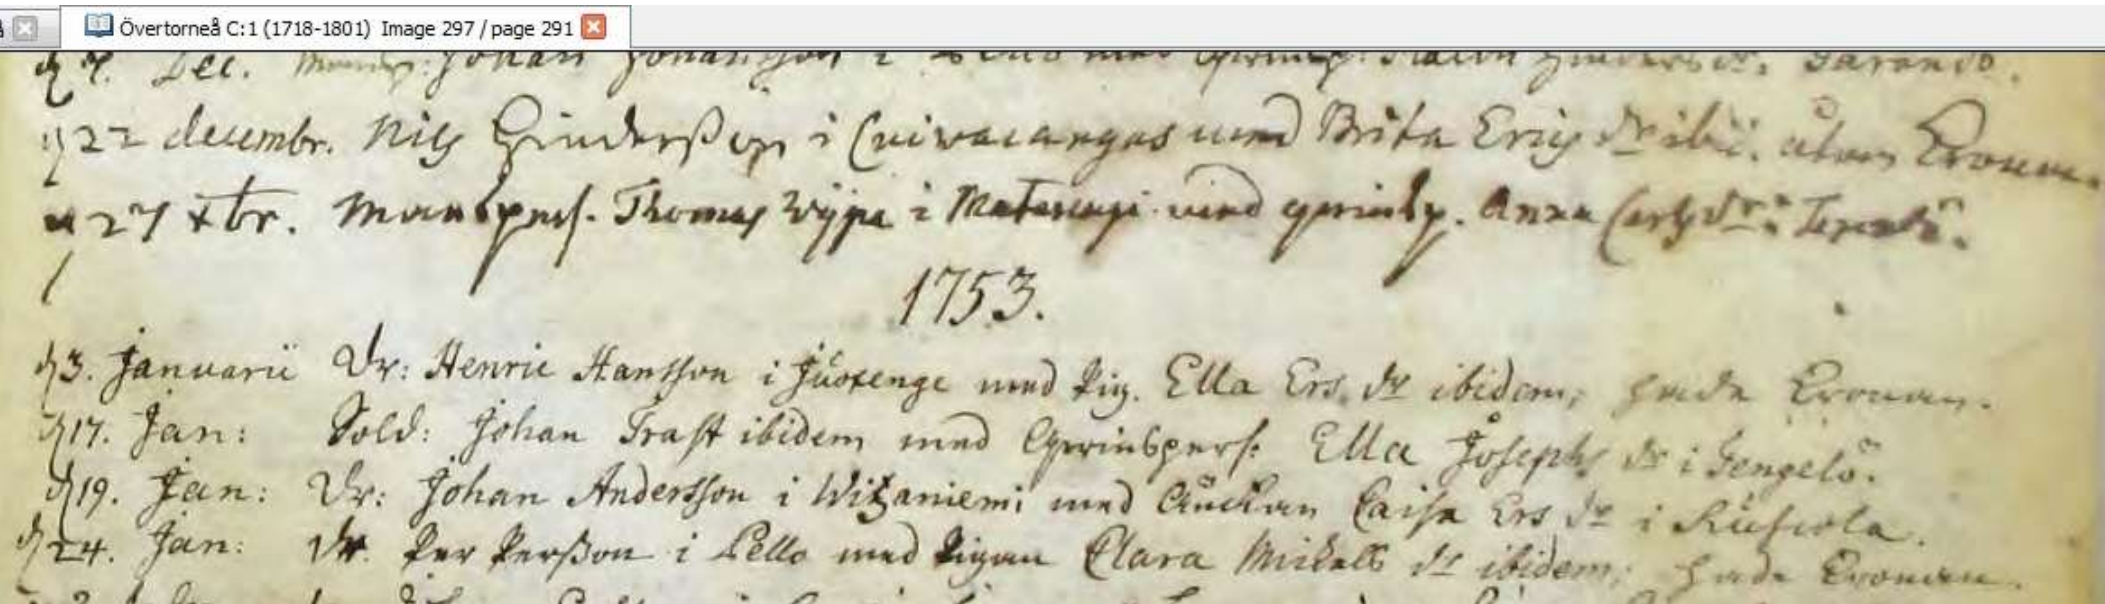 Övertorneå C:1 (1718-1801) Image 297 / page 291
Dec. Johan Johansson i Pello med
d 22 decembr. Nils Hindersson i Cuivacangas med Brita Erics dr ibid. utom Cronan.
d 27 xbr. Manspers. Thomas Wijpa i Matarengi med qwinsp. Anna Carls dr i
1753.
d 3. Januarii Dr: Henric Hansson i Juoxenge med Pig. Ella Ers. dr ibidem, hade Cronan.
d 17. Jan: Sold: Johan Trast ibidem med Qwinspers: Ella Josephs dr i Tengelö.
d 19. Jan: Dr: Johan Andersson i Witzaniemi med Änckan Caisa Ers dr i
d 24. Jan: dr. Per Persson i Pello med Pigan Clara Mikels dr ibidem, hade Cronan.